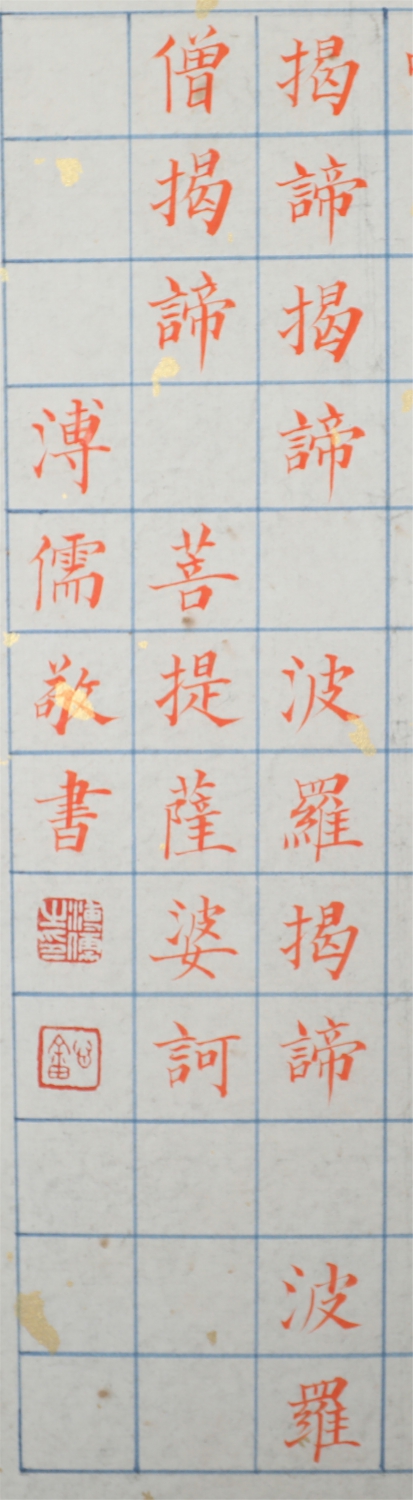 揭諦揭諦 波羅揭諦 波羅
僧揭諦 菩提薩婆訶
溥儒敬書